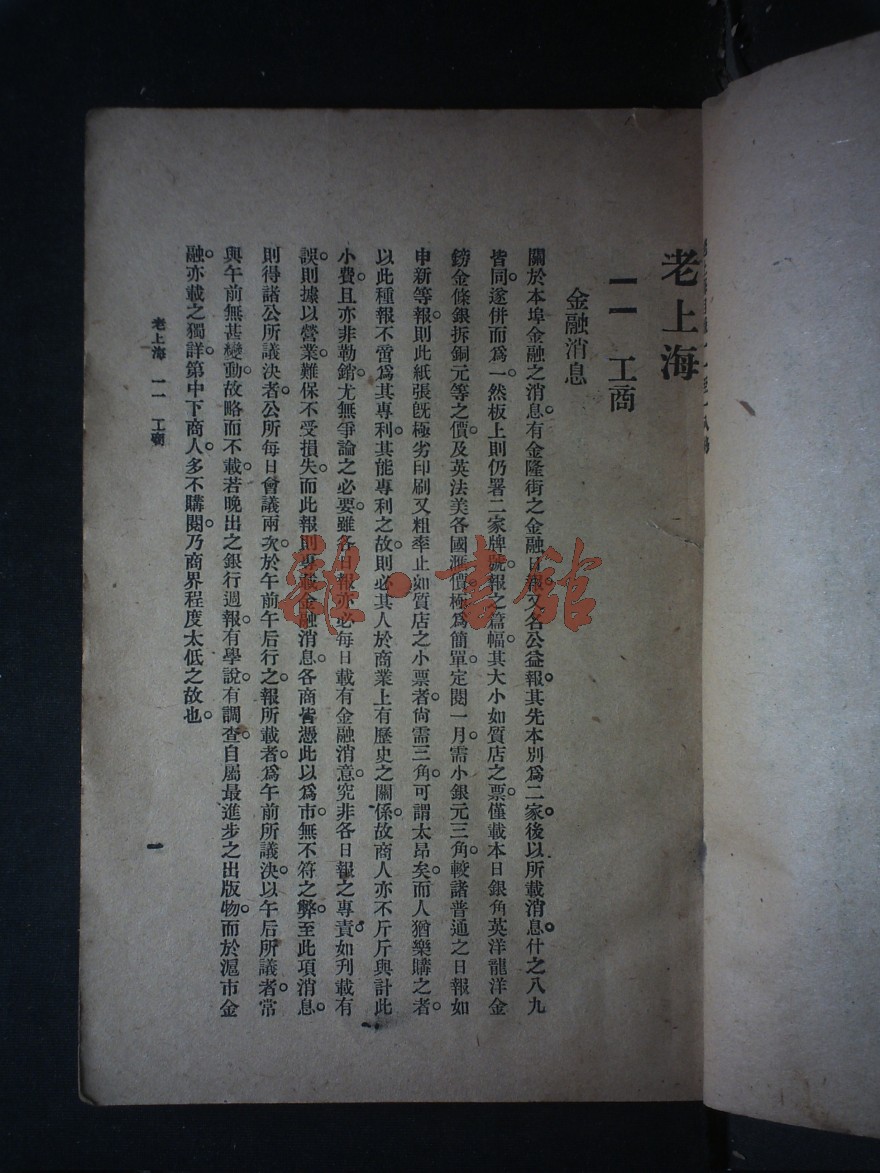 老上海
一一　工商
金融消息
關於本埠金融之消息。有金隆街之金融日報。又名公益報。其先本別爲二家。後以所載消息。什之八九
皆同。遂併而爲一。然板上則仍署二家牌號。報之篇幅。其大小如質店之票。僅載本日銀角英洋龍洋金
鎊金條銀拆銅元等之價。及英法美各國滙價。極爲簡單。定閱一月。需小銀元三角。較諸普通之日報如
申新等報。則此紙張旣極劣。印刷又粗率。止如質店之小票者。尙需三角。可謂太昂矣。而人猶樂購之者。
以此種報不啻爲其專利。其能專利之故。則必其人於商業上有歷史之關係。故商人亦不斤斤與計此
小費。且亦非勒銷。尤無爭論之必要。雖各日報亦必每日載有金融消意。究非各日報之專責。如刋載有
誤。則據以營業。難保不受損失。而此報則專載金融消息。各商皆憑此以爲市。無不符之弊。至此項消息。
則得諸公所議決者。公所每日會議兩次。於午前午后行之。報所載者。爲午前所議決。以午后所議者。常
與午前無甚變動。故略而不載。若晚出之銀行週報。有學說。有調查。自屬最進步之出版物。而於滬市金
融。亦載之獨詳。第中下商人。多不購閱。乃商界程度太低之故也。
老上海　一一　工商
一
雜·書館